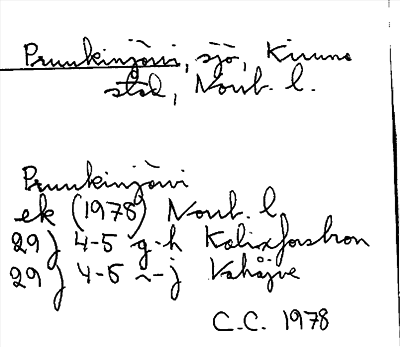 Pruukinjärvi, sjö, Kiruna
stad, Norrb. l.
Pruukinjärvi
ek (1978) Norrb. l
29J 4-5 g-h Kalixforsbron
29J 4-5 i-j Vahåive
C.C. 1978